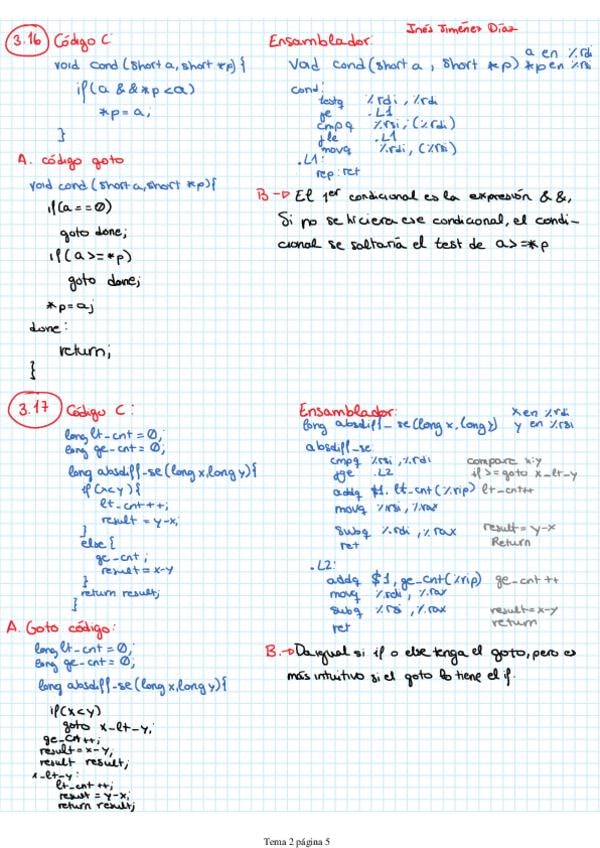 Inés Jiménez Díaz
3.16 Código C:
void cond (short a, short *p) {
if (a && *p < a)
*p = a;
}
A. código goto
void cond (short a, short *p) {
if (a == 0)
goto done;
if (a >= *p)
goto done;
*p = a;
done:
return;
}
Ensamblador:
a en %rdi
Void cond (short a, short *p) *p en %rsi
cond:
testq %rdi, %rdi
je .L1
cmpq %rsi, (%rdi)
jle .L1
movq %rdi, (%rsi)
.L1:
rep: ret
B -> El 1er condicional es la expresión &&,
Si no se hiciera ese condicional, el condi-
cional se saltaría el test de a >= *p
3.17 Código C:
long lt_cnt = 0;
long ge_cnt = 0;
long absdiff_se (long x, long y) {
if (x < y) {
lt_cnt++;
result = y-x;
}
else {
ge_cnt;
result = x-y
}
return result;
}
A. Goto código:
long lt_cnt = 0;
long ge_cnt = 0;
long absdiff_se (long x, long y) {
if (x < y)
goto x_lt_y;
ge_cnt++;
result = x-y;
result result;
x_lt_y:
lt_cnt++;
result = y-x;
return result;
Ensamblador: x en %rdi
long absdiff_se (long x, long y) y en %rsi
absdiff_se
cmpq %rsi, %rdi compare x:y
jge .L2 if >= goto x_lt_y
addq $1, lt_cnt (%rip) lt_cnt++
movq %rsi, %rax
subq %rdi, %rax result = y-x
ret Return
.L2:
addq $1, ge_cnt (%rip) ge_cnt++
movq %rdi, %rax
subq %rsi, %rax result = x-y
ret return
B. -> Da igual si if o else tenga el goto, pero es
más intuitivo si el goto lo tiene el if.
Tema 2 página 5